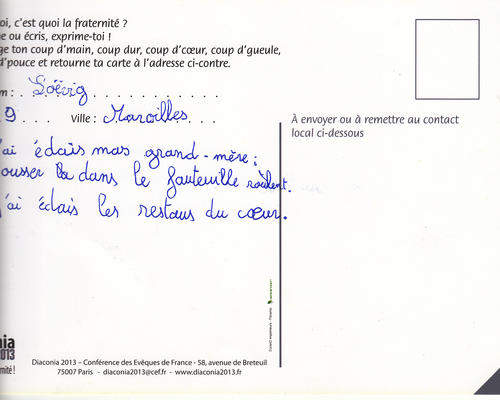 oi, c'est quoi la fraternité ?
e ou écris, exprime-toi !
ge ton coup d'main, coup dur, coup d'cœur, coup d'gueule,
d'pouce et retourne ta carte à l'adresse ci-contre.
m : Soëvig
9 Ville : Maroilles
À envoyer ou à remettre au contact
local ci-dessous
'ai édais mas grand-mère ;
ousser la dans le fauteuille roulent.
j'ai éclais les restaus du cœur.
nia
2013
rnité !
Diaconia 2013 – Conférence des Evêques de France - 58, avenue de Breteuil
75007 Paris - diaconia2013@cef.fr - www.diaconia2013.fr